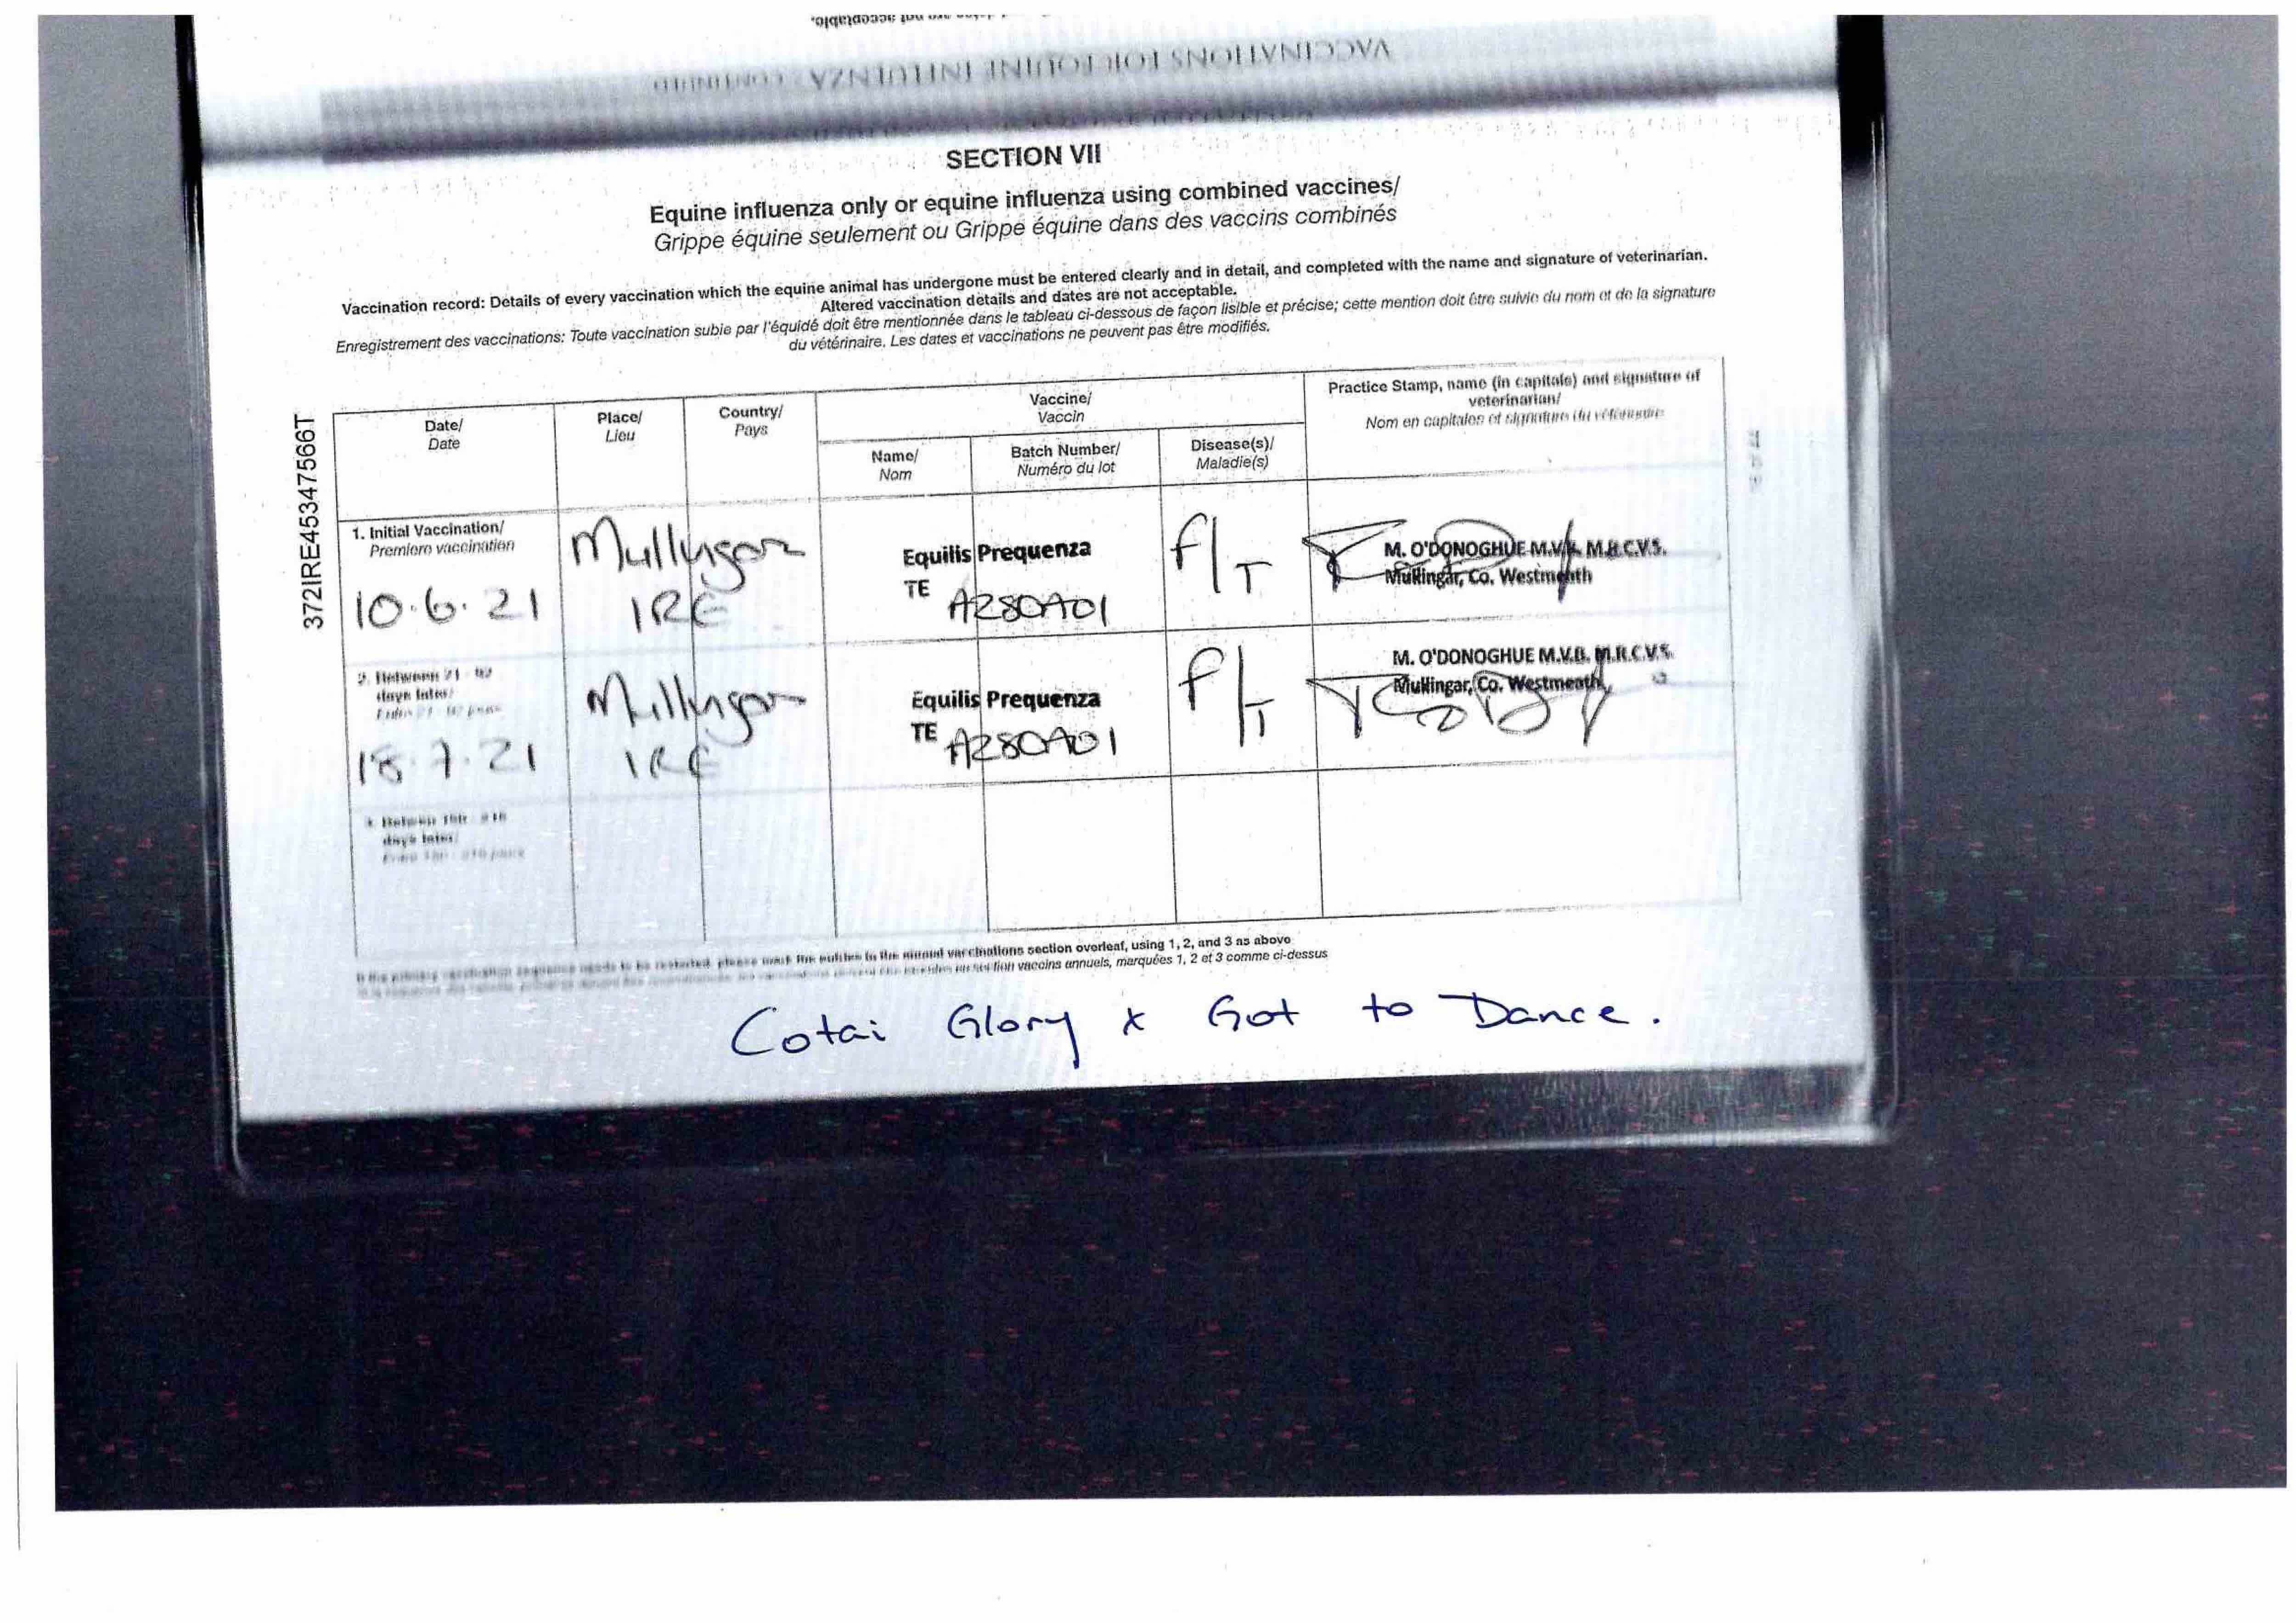 VACCINATIONS FOR EQUINE INFLUENZA - CONTINUED
SECTION VII
Equine influenza only or equine influenza using combined vaccines/
Grippe équine seulement ou Grippe équine dans des vaccins combinés
Vaccination record: Details of every vaccination which the equine animal has undergone must be entered clearly and in detail, and completed with the name and signature of veterinarian.
Altered vaccination details and dates are not acceptable.
Enregistrement des vaccinations: Toute vaccination subie par l'équidé doit être mentionnée dans le tableau ci-dessous de façon lisible et précise; cette mention doit être suivie du nom et de la signature
du vétérinaire. Les dates et vaccinations ne peuvent pas être modifiés.
372IRE453475566T
Date/
Date
Place/
Lieu
Country/
Pays
Vaccine/
Vaccin
Name/
Nom
Batch Number/
Numéro du lot
Disease(s)/
Maladie(s)
Practice Stamp, name (in capitals) and signature of
veterinarian/
Nom en capitales et signature du vétérinaire
1. Initial Vaccination/
Premiere vaccination
10.6.21
Mullingar
IRE
Equilis Prequenza
TE
A280A01
F/T
M. O'DONOGHUE M.V.B. M.R.C.V.S.
Mullingar, Co. Westmeath
2. Between 21 - 92
days later/
18.7.21
Mullingar
IRE
Equilis Prequenza
TE
A280A01
F/T
M. O'DONOGHUE M.V.B. M.R.C.V.S.
Mullingar, Co. Westmeath
days later/
If the primary vaccination sequence needs to be restarted please mark the entries in the annual vaccinations section overleaf, using 1, 2, and 3 as above
section vaccins annuels, marquées 1, 2 et 3 comme ci-dessus
Cotai Glory x Got to Dance.